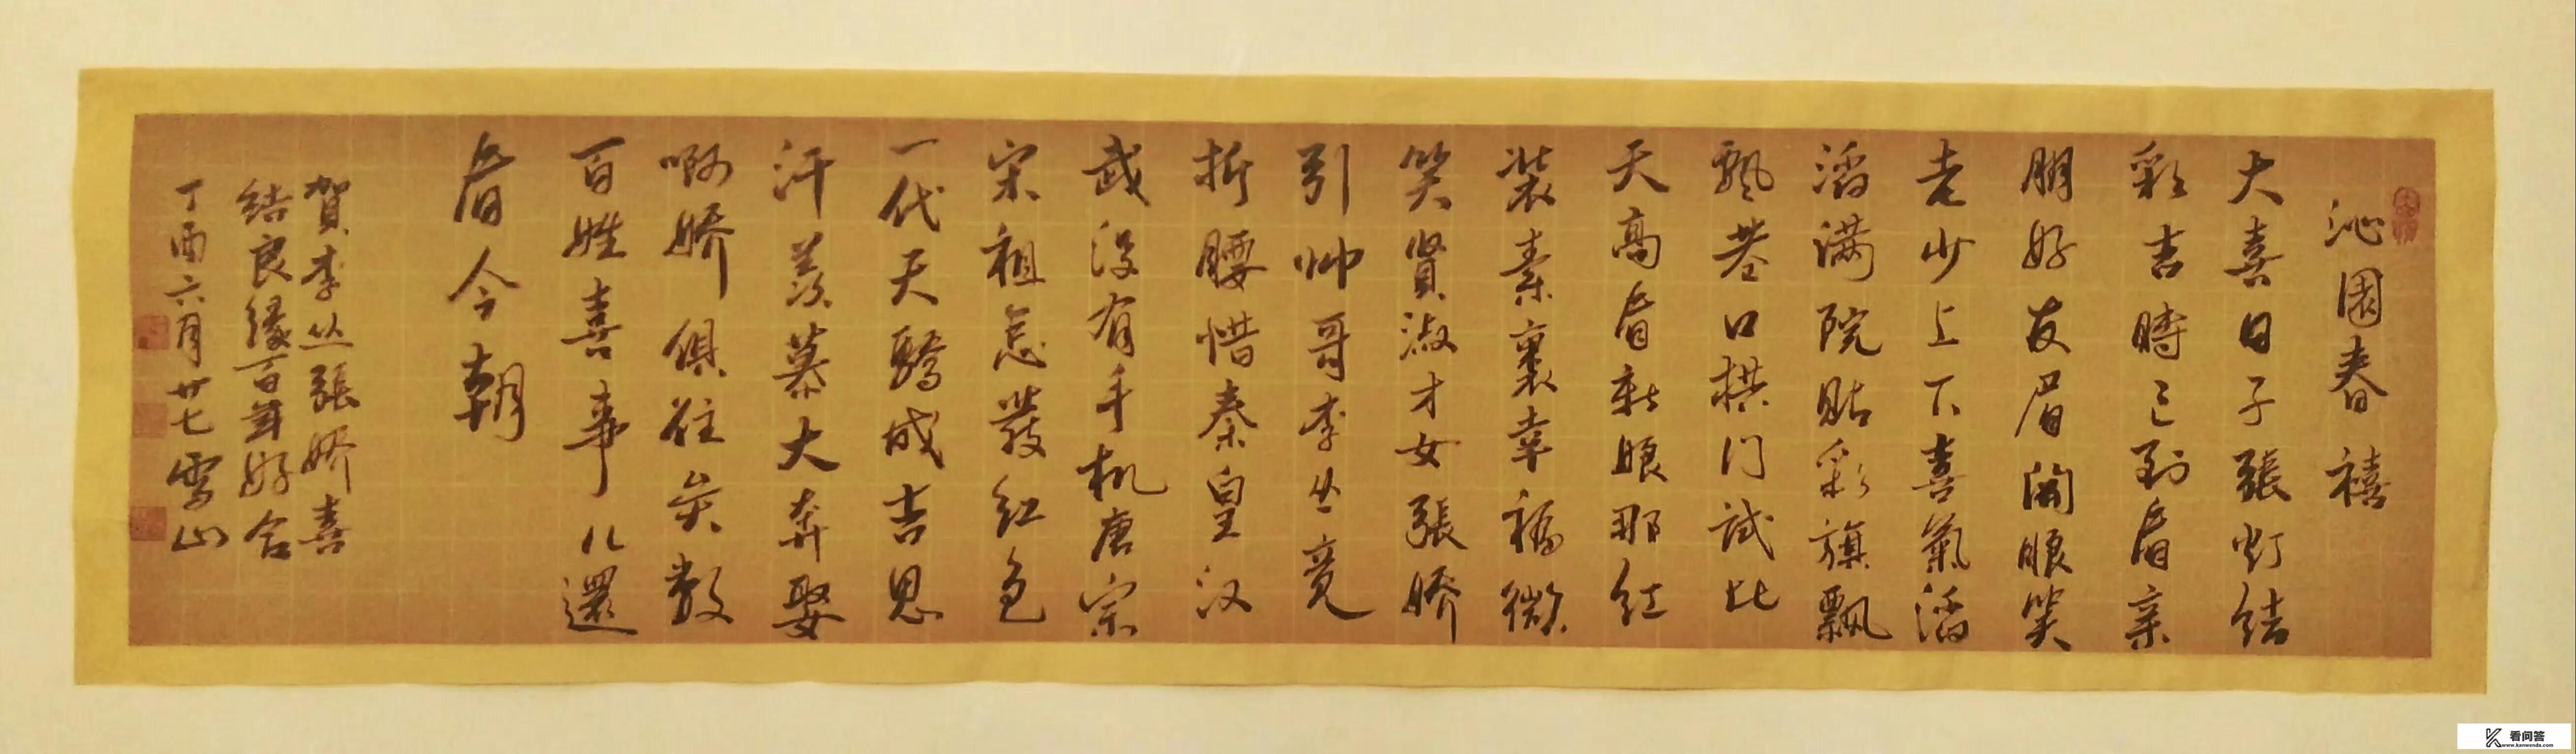 沁園春 禧
大喜日子張灯结
彩吉時已到看亲
朋好友眉開眼笑
老少上下喜氣滔
滔满院貼彩旗飘
飄巷口拱门試比
天高看新娘那红
装素裹幸福微
笑賢淑才女張娇
引帅哥李丛竟
折腰惜秦皇汉
武没有手机唐宗
宋祖怎發红包
一代天驕成吉思
汗羡慕大奔娶
啊娇俱往矣数
百姓喜事儿還
看今朝
賀李丛張娇喜
结良缘百年好合
丁酉六月廿七雪山
看问答
www.kanwenda.com